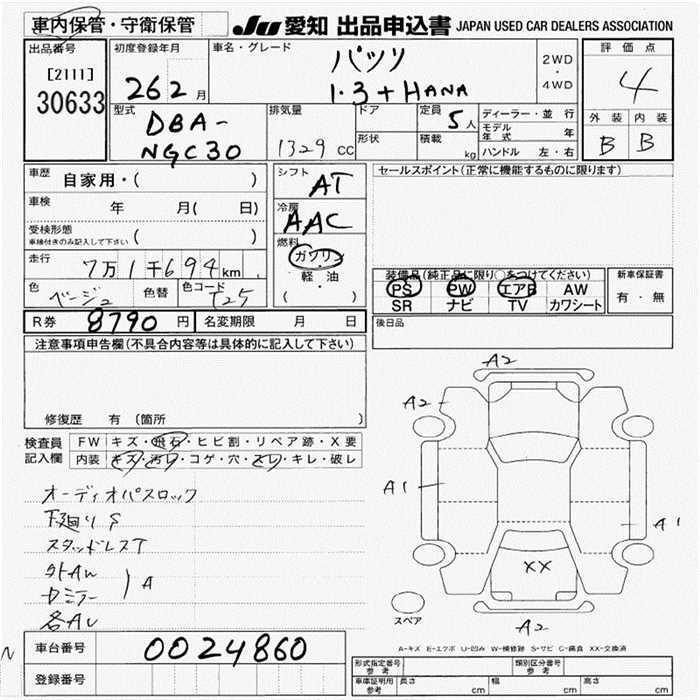 車内保管・守衛保管
JU 愛知 出品申込書 JAPAN USED CAR DEALERS ASSOCIATION
出品番号
[2111]
30633
初度登録年月
26 2 月
車名・グレード
パッソ
1.3 + HANA
2WD
・
4WD
評価点
4
外装 内装
B B
型式
DBA-
NGC30
排気量
1329 cc
ドア
形状
定員
5人
積載
kg
ディーラー・並行
モデル年式 年
ハンドル 左・右
車歴
自家用・( )
車検
年 月( 日)
受検形態
車検付きのみ記入して下さい ( )
走行
7万1千694km
色
ベージュ
色替
色コード
T25
シフト
AT
冷房
AAC
燃料
ガソリン
軽・油
( )
セールスポイント(正常に機能するものに限ります)
装備品(純正品に限り○をつけてください)
PS PW エアB AW
SR ナビ TV カワシート
新車保証書
有・無
R券 8790 円
名変期限 月 日
後日品
注意事項申告欄(不具合内容等は具体的に記入して下さい)
修復歴 有 (箇所 )
検査員
記入欄
FW キズ・飛石・ヒビ割・リペア跡・X要
内装 キズ・汚レ・コゲ・穴・スレ・キレ・破レ
オーディオパスロック
下廻りS
スタッドレスT
外AW
ドミラー
A
各AU
A2
A2
A1
A1
XX
A2
スペア
A-キズ E-エクボ U-凹み W-補修跡 S-サビ C-腐食 XX-交換済
N
車台番号 0024860
登録番号
形式指定番号
参考
類別区分番号
参考
車庫証明用
参考
長さ cm
幅 cm
高さ cm